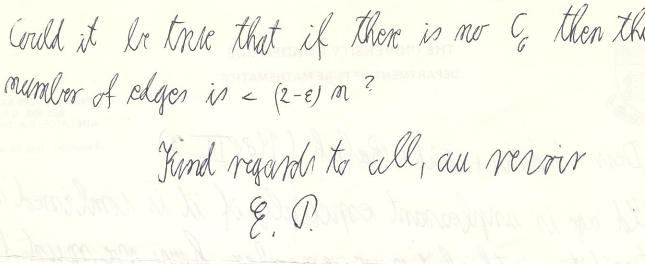 Could it be true that if there is no C₆ then the
number of edges is < (2-ε) n ?
Kind regards to all, au revoir
E. P.